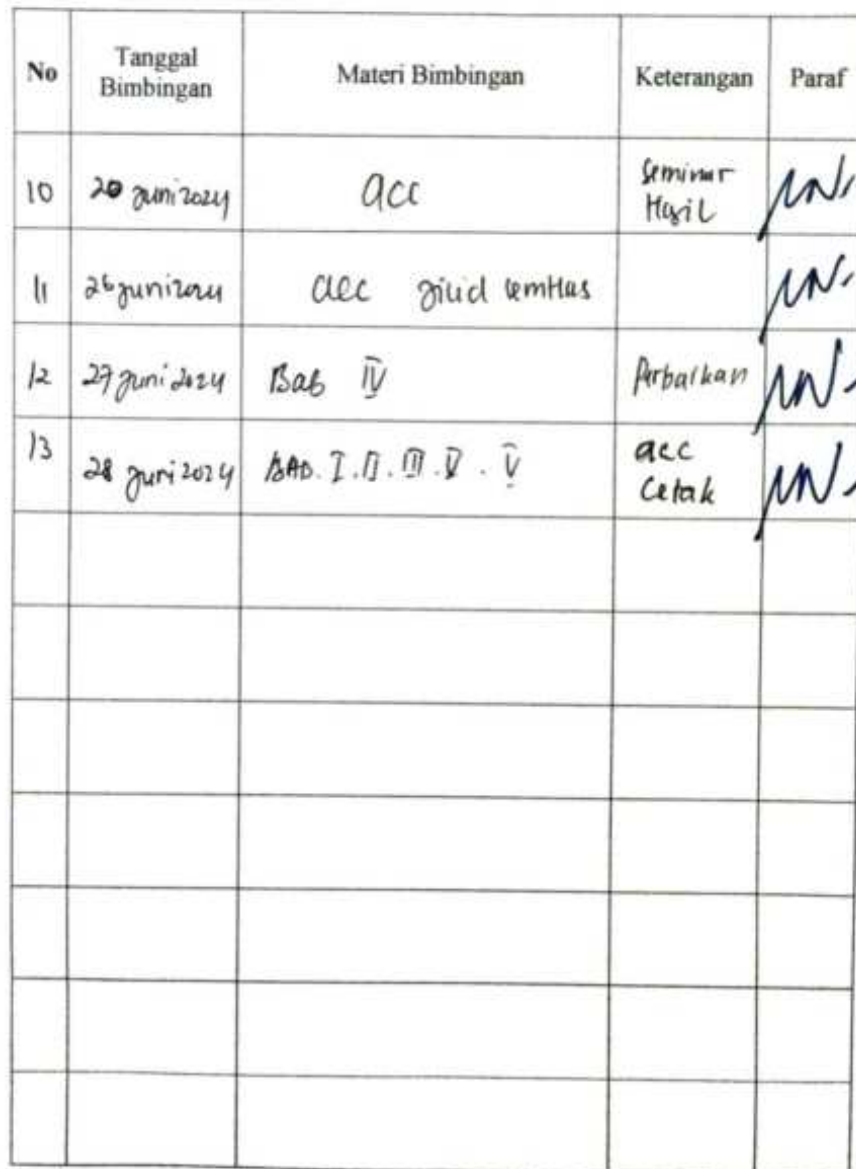 No Tanggal Bimbingan Materi Bimbingan Keterangan Paraf
10 20 Juni 2024 acc Seminar Hasil
11 26 Juni 2024 acc Jilid SemHas
12 27 Juni 2024 Bab IV Perbaikan
13 28 Juni 2024 BAB. I. II. III. IV. V acc Cetak